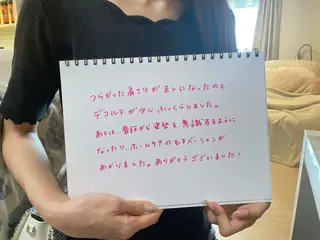 つらかった肩こりがましになったのと
デコルテが少しふっくらしました。
あとは、普段から姿勢を意識するように
なったり、ホームケアのモチベーションが
あがりました。ありがとうございました！